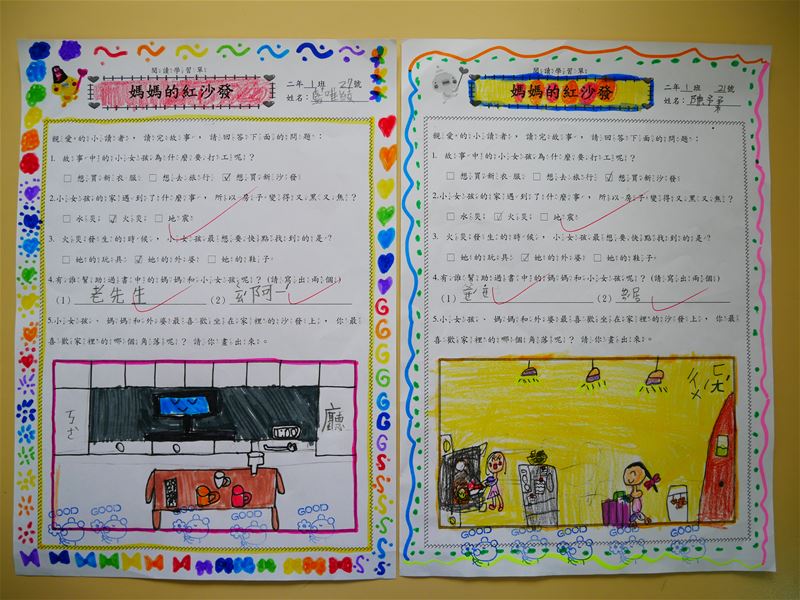 閱讀學習單
媽媽的紅沙發
二年1班 27號
姓名:
親愛的小讀者，請讀完故事，請回答下面的問題：
1. 故事中的小女孩為什麼要打工呢？
□想買新衣服 □想去旅行 ☑想買新沙發
2.小女孩的家遇到了什麼事，所以房子變得又黑又焦？
□水災 ☑火災 □地震
3. 火災發生的時候，小女孩最想要快點找到的是？
□她的玩具 ☑她的外婆 □她的鞋子
4.有誰幫助過書中的媽媽和小女孩呢？(請寫出兩個)
(1) 老先生 (2)
5.小女孩、媽媽和外婆最喜歡坐在家裡的沙發上，你最
喜歡家裡的哪個角落呢？請你畫出來。
廳
GOOD GOOD GOOD GOOD GOOD
閱讀學習單
媽媽的紅沙發
二年1班 21號
姓名:
親愛的小讀者，請讀完故事，請回答下面的問題：
1. 故事中的小女孩為什麼要打工呢？
□想買新衣服 □想去旅行 ☑想買新沙發
2.小女孩的家遇到了什麼事，所以房子變得又黑又焦？
□水災 ☑火災 □地震
3. 火災發生的時候，小女孩最想要快點找到的是？
□她的玩具 ☑她的外婆 □她的鞋子
4.有誰幫助過書中的媽媽和小女孩呢？(請寫出兩個)
(1) (2)
5.小女孩、媽媽和外婆最喜歡坐在家裡的沙發上，你最
喜歡家裡的哪個角落呢？請你畫出來。
GOOD GOOD GOOD GOOD GOOD